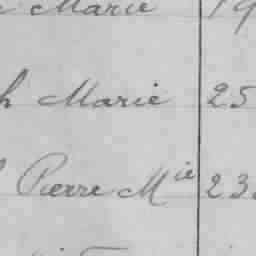 Marie 19
h Marie 25
Pierre Mie 23